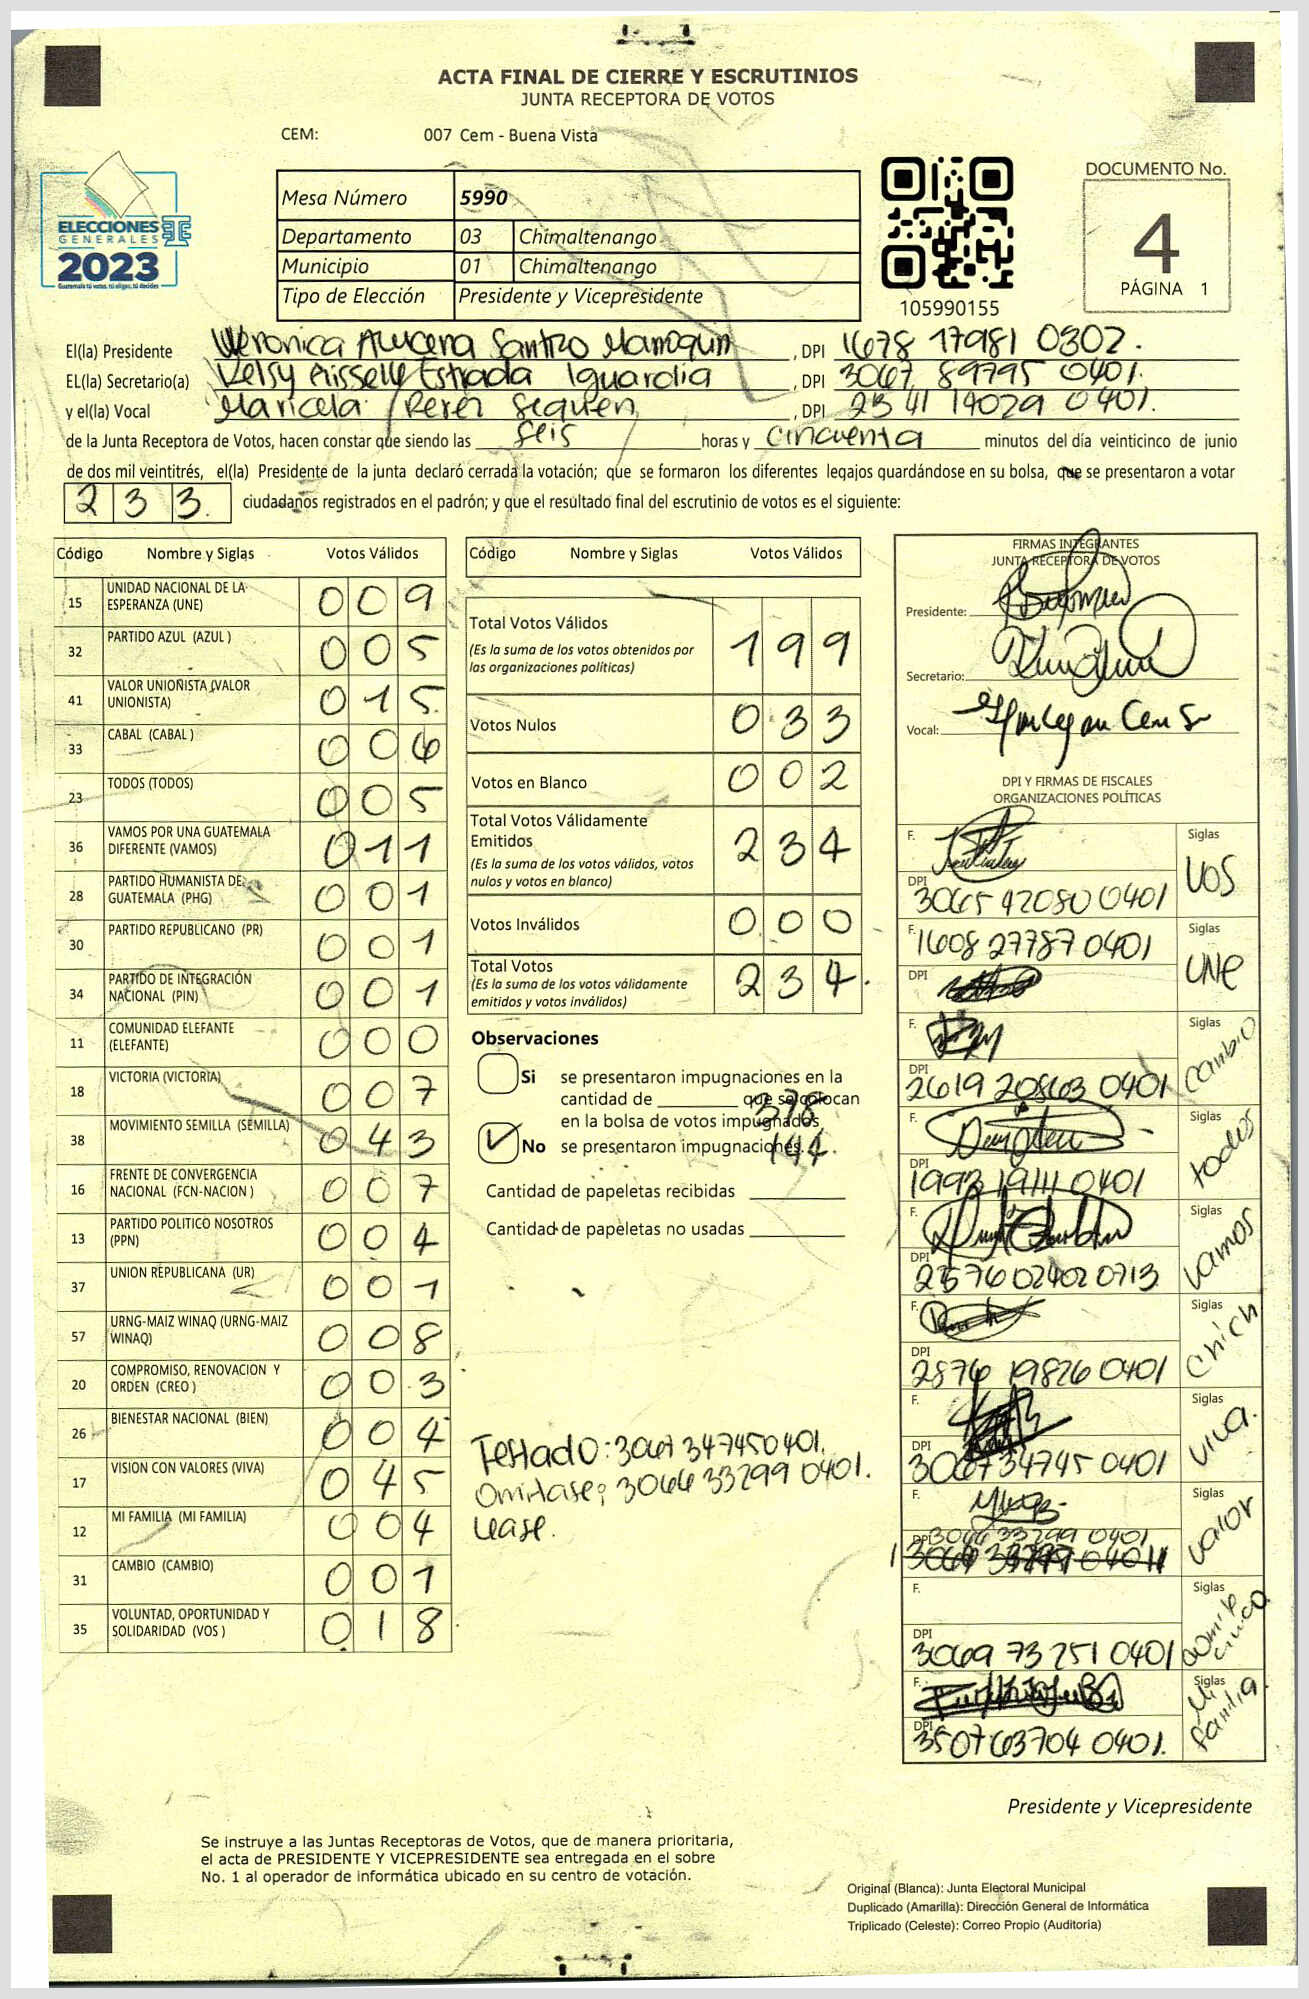 ACTA FINAL DE CIERRE Y ESCRUTINIOS
JUNTA RECEPTORA DE VOTOS
CEM: 007 Cem - Buena Vista
DOCUMENTO No.
4
PÁGINA 1
ELECCIONES
GENERALES
2023
Guatemala tú votas, tú eliges, tú decides
Mesa Número 5990
Departamento 03 Chimaltenango
Municipio 01 Chimaltenango
Tipo de Elección Presidente y Vicepresidente
105990155
El(la) Presidente Veronica Santzo Marroquin, DPI 1678 17981 0302.
EL(la) Secretario(a) Kelsy Aisselle Estrada Iguardia, DPI 3067 89795 0401.
y el(la) Vocal Maricela Perez Sequen, DPI 2341 14029 0401.
de la Junta Receptora de Votos, hacen constar que siendo las seis horas y cincuenta minutos del día veinticinco de junio
de dos mil veintitrés, el(la) Presidente de la junta declaró cerrada la votación; que se formaron los diferentes legajos guardándose en su bolsa, que se presentaron a votar
233. ciudadanos registrados en el padrón; y que el resultado final del escrutinio de votos es el siguiente:
Código Nombre y Siglas Votos Válidos
15 UNIDAD NACIONAL DE LA ESPERANZA (UNE) 009
32 PARTIDO AZUL (AZUL ) 005
41 VALOR UNIONISTA (VALOR UNIONISTA) 015
33 CABAL (CABAL ) 006
23 TODOS (TODOS) 005
36 VAMOS POR UNA GUATEMALA DIFERENTE (VAMOS) 011
28 PARTIDO HUMANISTA DE GUATEMALA (PHG) 001
30 PARTIDO REPUBLICANO (PR) 001
34 PARTIDO DE INTEGRACIÓN NACIONAL (PIN) 001
11 COMUNIDAD ELEFANTE (ELEFANTE) 000
18 VICTORIA (VICTORIA) 007
38 MOVIMIENTO SEMILLA (SEMILLA) 043
16 FRENTE DE CONVERGENCIA NACIONAL (FCN-NACION ) 007
13 PARTIDO POLITICO NOSOTROS (PPN) 004
37 UNION REPUBLICANA (UR) 001
57 URNG-MAIZ WINAQ (URNG-MAIZ WINAQ) 008
20 COMPROMISO, RENOVACION Y ORDEN (CREO ) 003
26 BIENESTAR NACIONAL (BIEN) 004
17 VISION CON VALORES (VIVA) 045
12 MI FAMILIA (MI FAMILIA) 004
31 CAMBIO (CAMBIO) 001
35 VOLUNTAD, OPORTUNIDAD Y SOLIDARIDAD (VOS ) 018
Código Nombre y Siglas Votos Válidos
Total Votos Válidos 199
(Es la suma de los votos obtenidos por
las organizaciones políticas)
Votos Nulos 033
Votos en Blanco 002
Total Votos Válidamente
Emitidos 234
(Es la suma de los votos válidos, votos
nulos y votos en blanco)
Votos Inválidos 000
Total Votos 234.
(Es la suma de los votos válidamente
emitidos y votos inválidos)
Observaciones
Si se presentaron impugnaciones en la
cantidad de ________ que se colocan
en la bolsa de votos impugnados.
378
No se presentaron impugnaciones.
144.
Cantidad de papeletas recibidas
Cantidad de papeletas no usadas
Testado: 3067 34745 0401.
Omitase; 3064 33299 0401.
Lease.
FIRMAS INTEGRANTES
JUNTA RECEPTORA DE VOTOS
Presidente:
Secretario:
Vocal:
DPI Y FIRMAS DE FISCALES
ORGANIZACIONES POLÍTICAS
F. Siglas VOS
DPI 3065 42080 0401
F. 1608 27787 0401 Siglas UNE
DPI
F. Siglas cambio
DPI 2619 20863 0401
F. Siglas todos
DPI 1993 19111 0401
F. Siglas Vamos
DPI 2576 02402 0713
F. Siglas
DPI 2876 19826 0401
F. Siglas viva.
DPI 3067 34745 0401
F. Siglas valor
DPI 3064 33299 0401
F. Siglas
DPI 3069 73251 0401
F. Siglas Mi familia
DPI 3507 63704 0401.
Presidente y Vicepresidente
Se instruye a las Juntas Receptoras de Votos, que de manera prioritaria,
el acta de PRESIDENTE Y VICEPRESIDENTE sea entregada en el sobre
No. 1 al operador de informática ubicado en su centro de votación.
Original (Blanca): Junta Electoral Municipal
Duplicado (Amarilla): Dirección General de Informática
Triplicado (Celeste): Correo Propio (Auditoría)